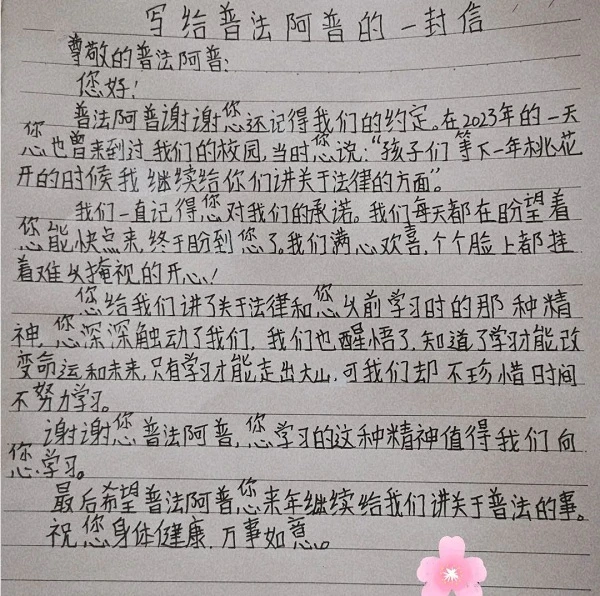 写给普法阿普的一封信
尊敬的普法阿普:
您好!
普法阿普谢谢您还记得我们的约定。在2023年的一天
您也曾来到过我们的校园,当时您说:“孩子们等下一年桃花
开的时候我继续给你们讲关于法律的方面”。
我们一直记得您对我们的承诺。我们每天都在盼望着
您能快点来,终于盼到您了。我们满心欢喜,个个脸上都挂
着难以掩视的开心!
您给我们讲了关于法律和您以前学习时的那种精
神,您深深触动了我们,我们也醒悟了,知道了学习才能改
变命运和未来,只有学习才能走出大山,可我们却不珍惜时间
不努力学习。
谢谢您普法阿普,您学习的这种精神值得我们向
您学习。
最后希望普法阿普您来年继续给我们讲关于普法的事。
祝您身体健康,万事如意。